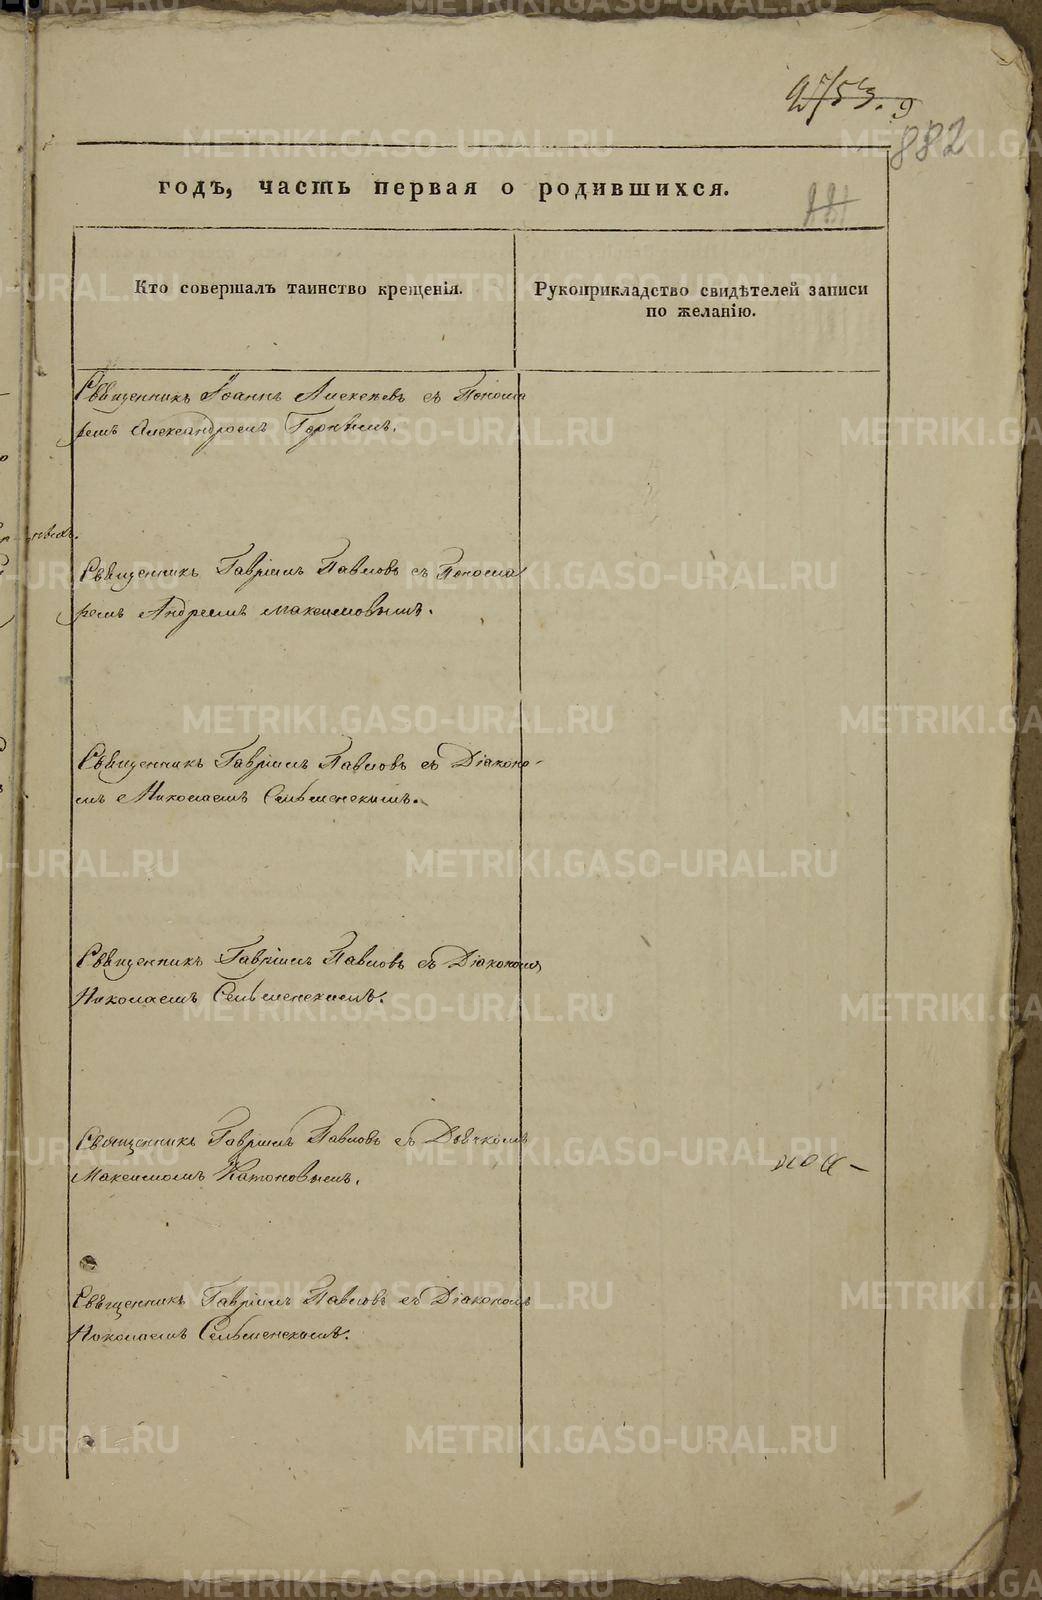 882
годъ, часть первая о родившихся.
Кто совершалъ таинство крещенія.
Рукоприкладство свидѣтелей записи
по желанію.
Священникъ Іоаннъ Алексѣевъ съ Понома
ремъ Александромъ
Священникъ Гавріилъ Павловъ съ Понома
ремъ Андреемъ Максимовымъ.
Священникъ Гавріилъ Павловъ съ Діаконо-
мъ Николаемъ Сельменскимъ.
Священникъ Гавріилъ Павловъ съ Діакономъ
Николаемъ Сельменскимъ.
Священникъ Гавріилъ Павловъ съ Дьячкомъ
Максимомъ Катоновымъ.
Священникъ Гавріилъ Павловъ съ Діакономъ
Николаемъ Сельменскимъ.
METRIKI.GASO-URAL.RU